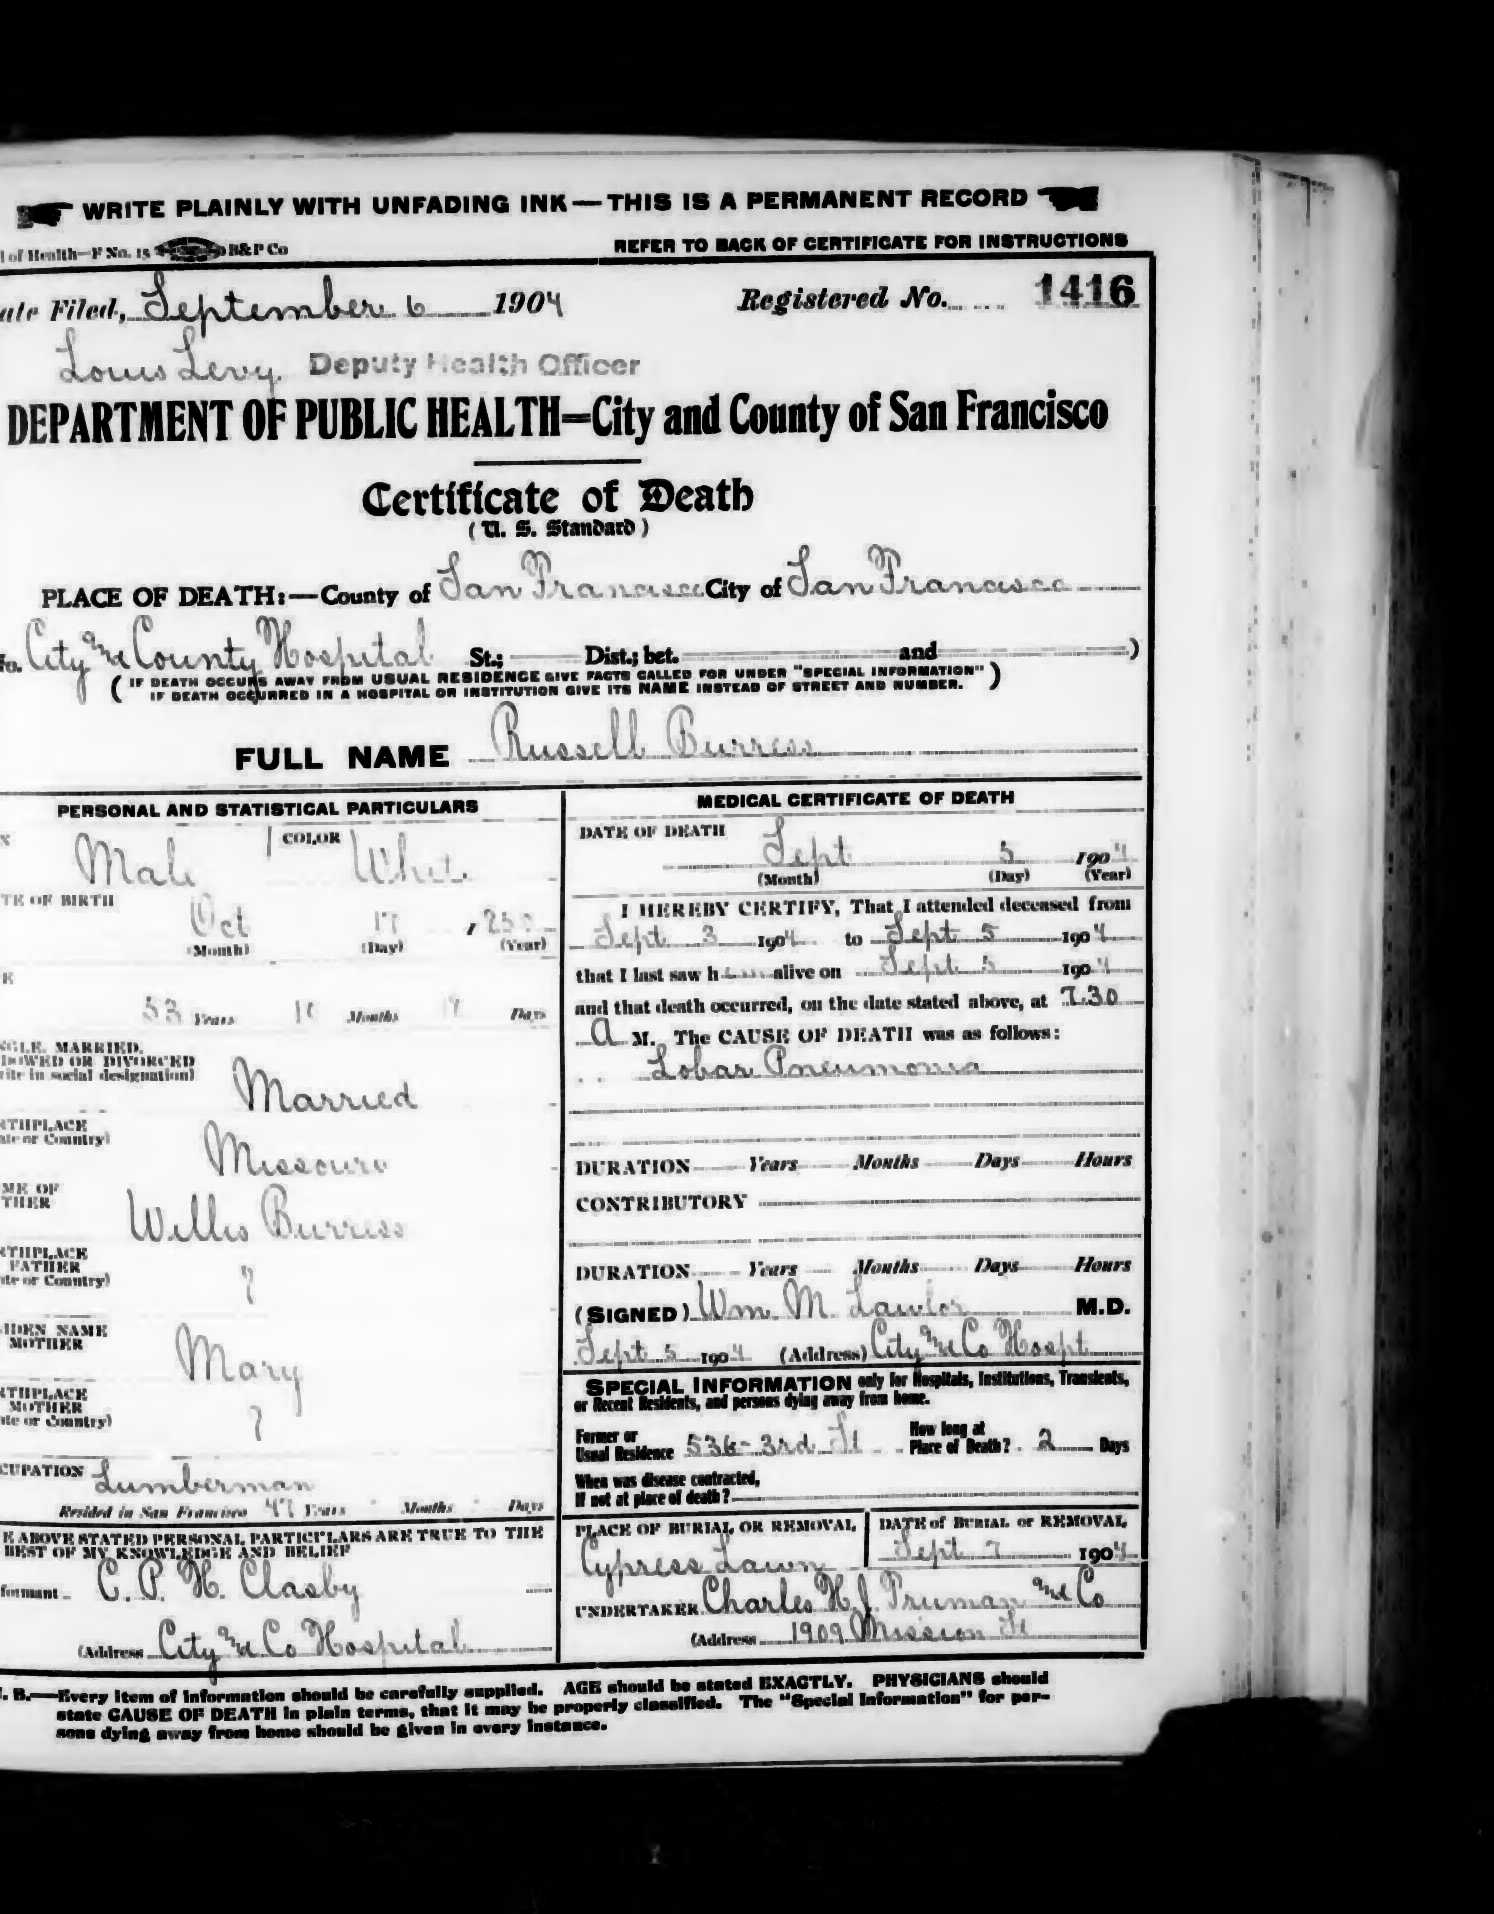 WRITE PLAINLY WITH UNFADING INK—THIS IS A PERMANENT RECORD
l of Health—F No. 15 B&P Co REFER TO BACK OF CERTIFICATE FOR INSTRUCTIONS
ate Filed, September 6 1904 Registered No. 1416
Louis Levy. Deputy Health Officer
DEPARTMENT OF PUBLIC HEALTH—City and County of San Francisco
Certificate of Death
(U. S. Standard)
PLACE OF DEATH:—County of San Francisco City of San Francisco
No. City and County Hospital St.; Dist.; bet. and )
(IF DEATH OCCURS AWAY FROM USUAL RESIDENCE GIVE FACTS CALLED FOR UNDER "SPECIAL INFORMATION"
IF DEATH OCCURRED IN A HOSPITAL OR INSTITUTION GIVE ITS NAME INSTEAD OF STREET AND NUMBER.)
FULL NAME Russell Burress
PERSONAL AND STATISTICAL PARTICULARS
X Male COLOR White
TE OF BIRTH
Oct 17
(Month) (Day) (Year)
E
53 Years 10 Months Days
NGLE, MARRIED,
DOWED OR DIVORCED
rite in social designation)
Married
RTHPLACE
ate or Country)
Missouri
ME OF
THER
Willis Burress
RTHPLACE
FATHER
ate or Country)
?
IDEN NAME
MOTHER
Mary
RTHPLACE
MOTHER
ate or Country)
?
CUPATION Lumberman
Resided in San Francisco 47 Years Months Days
E ABOVE STATED PERSONAL PARTICULARS ARE TRUE TO THE
BEST OF MY KNOWLEDGE AND BELIEF
formant C. P. H. Clasby
(Address City and Co Hospital
MEDICAL CERTIFICATE OF DEATH
DATE OF DEATH
Sept 5 1904
(Month) (Day) (Year)
I HEREBY CERTIFY, That I attended deceased from
Sept 3 1904 to Sept 5 1904
that I last saw him alive on Sept 5 1904
and that death occurred, on the date stated above, at 7.30
A M. The CAUSE OF DEATH was as follows:
Lobar Pneumonia
DURATION Years Months Days Hours
CONTRIBUTORY
DURATION Years Months Days Hours
(SIGNED) Wm. M. Lawlor M.D.
Sept 5 1904 (Address) City and Co Hospt
SPECIAL INFORMATION only for Hospitals, Institutions, Transients,
or Recent Residents, and persons dying away from home.
Former or
Usual Residence 536 - 3rd St
How long at
Place of Death? 2 Days
When was disease contracted,
If not at place of death?
PLACE OF BURIAL OR REMOVAL
Cypress Lawn
DATE of BURIAL or REMOVAL
Sept 7 1904
UNDERTAKER Charles H. J. Truman and Co
(Address 1909 Mission St
N. B.—Every item of information should be carefully supplied. AGE should be stated EXACTLY. PHYSICIANS should
state CAUSE OF DEATH in plain terms, that it may be properly classified. The "Special Information" for per-
sons dying away from home should be given in every instance.